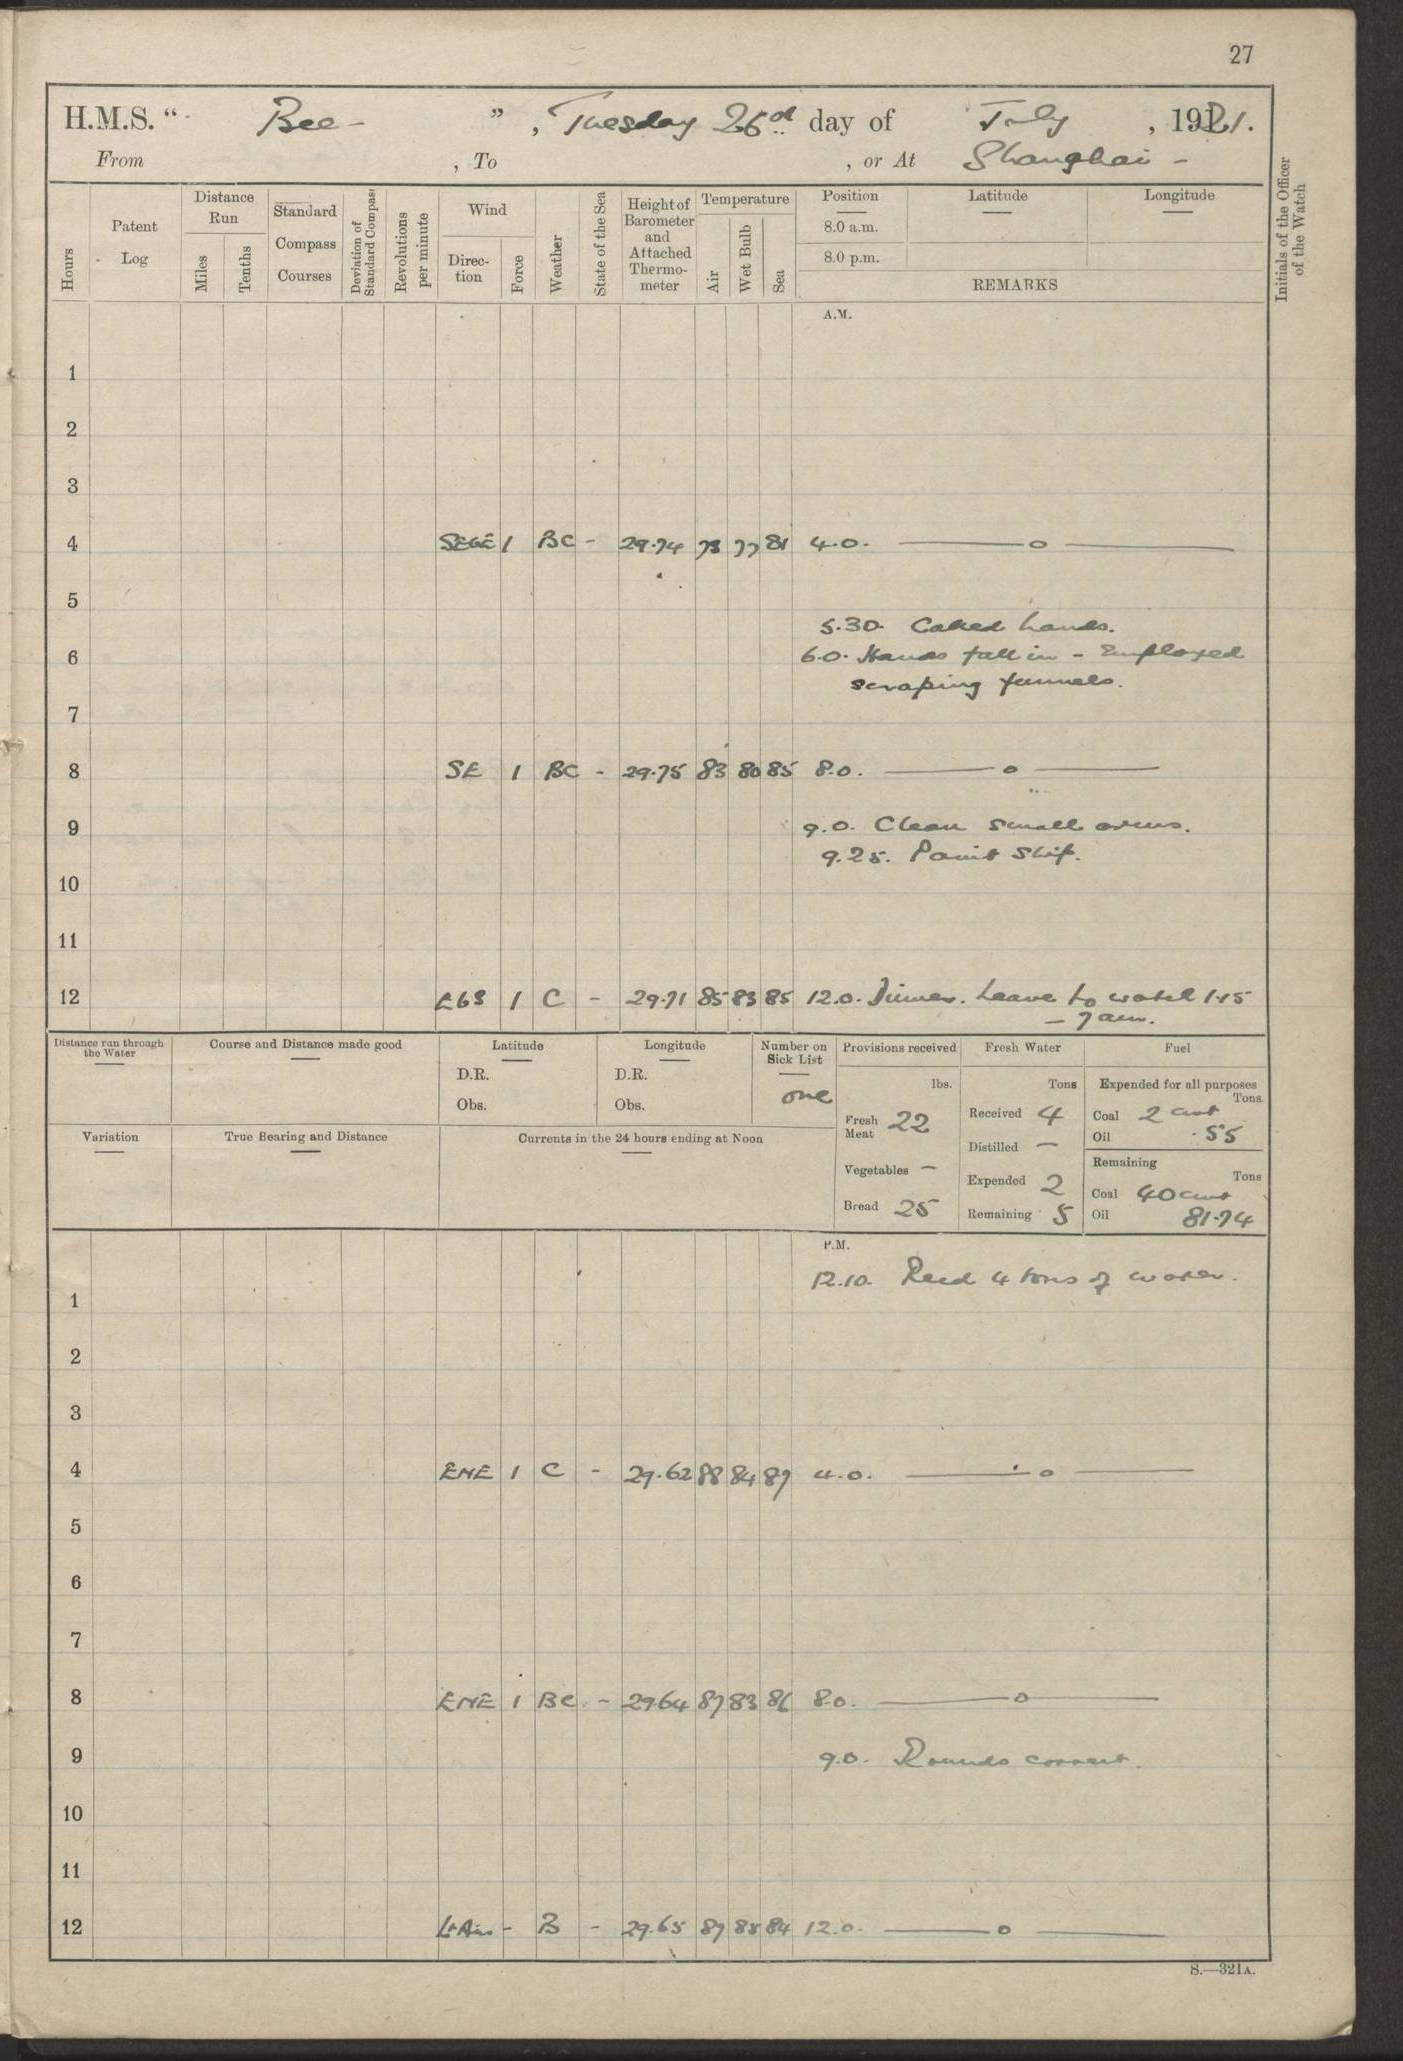 27
H.M.S. " Bee - " , Tuesday 26d day of July , 1921.
From , To , or At Shanghai -
Hours
Patent Log
Distance Run
Miles
Tenths
Standard Compass Courses
Deviation of Standard Compass
Revolutions per minute
Wind
Direction
Force
Weather
State of the Sea
Height of Barometer and Attached Thermometer
Temperature
Air
Wet Bulb
Sea
Position Latitude Longitude
8.0 a.m.
8.0 p.m.
REMARKS
Initials of the Officer of the Watch
A.M.
1
2
3
4 SEbE 1 BC - 29.74 78 77 81 4.0. —o—
5
5.30. Called hands.
6 6.0. Hands fall in - Employed
scraping funnels.
7
8 SE 1 BC - 29.75 83 80 85 8.0. —o—
9 9.0. Clean small arms.
9.25. Paint Ship.
10
11
12 EbS 1 C - 29.71 85 83 85 12.0. Dinner. Leave to watch 1.15
— 7 am.
Distance run through the Water
Course and Distance made good
Latitude
D.R.
Obs.
Longitude
D.R.
Obs.
Number on Sick List
one
Provisions received
lbs.
Fresh Meat 22
Vegetables —
Bread 25
Fresh Water
Tons
Received 4
Distilled —
Expended 2
Remaining 5
Fuel
Expended for all purposes
Tons
Coal 2 cwt
Oil .55
Remaining
Tons
Coal 40 cwt
Oil 81.74
Variation
True Bearing and Distance
Currents in the 24 hours ending at Noon
P.M.
12.10. Recd 4 tons of water.
1
2
3
4 ENE 1 C - 29.62 88 84 87 4.0. —o—
5
6
7
8 ENE 1 BC - 29.64 87 83 86 8.0. —o—
9 9.0. Rounds correct.
10
11
12 Lt Airs - B - 29.65 87 85 84 12.0. —o—
S.—321A.